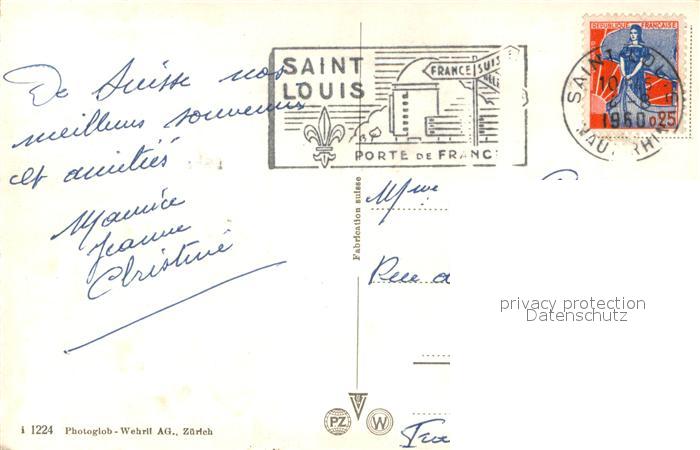 De Suisse nos
meilleurs souvenirs
et amitiés
Maurice
Jeanne
Christine
SAINT
LOUIS
FRANCE
SUIS
PORTE DE FRANC
REPUBLIQUE FRANÇAISE
0,25
SAINT-LOUIS
1960
HAUT-RHIN
Fabrication suisse
Mme
Rue
privacy protection
Datenschutz
i 1224 Photoglob-Wehrli AG., Zürich
PZ
W